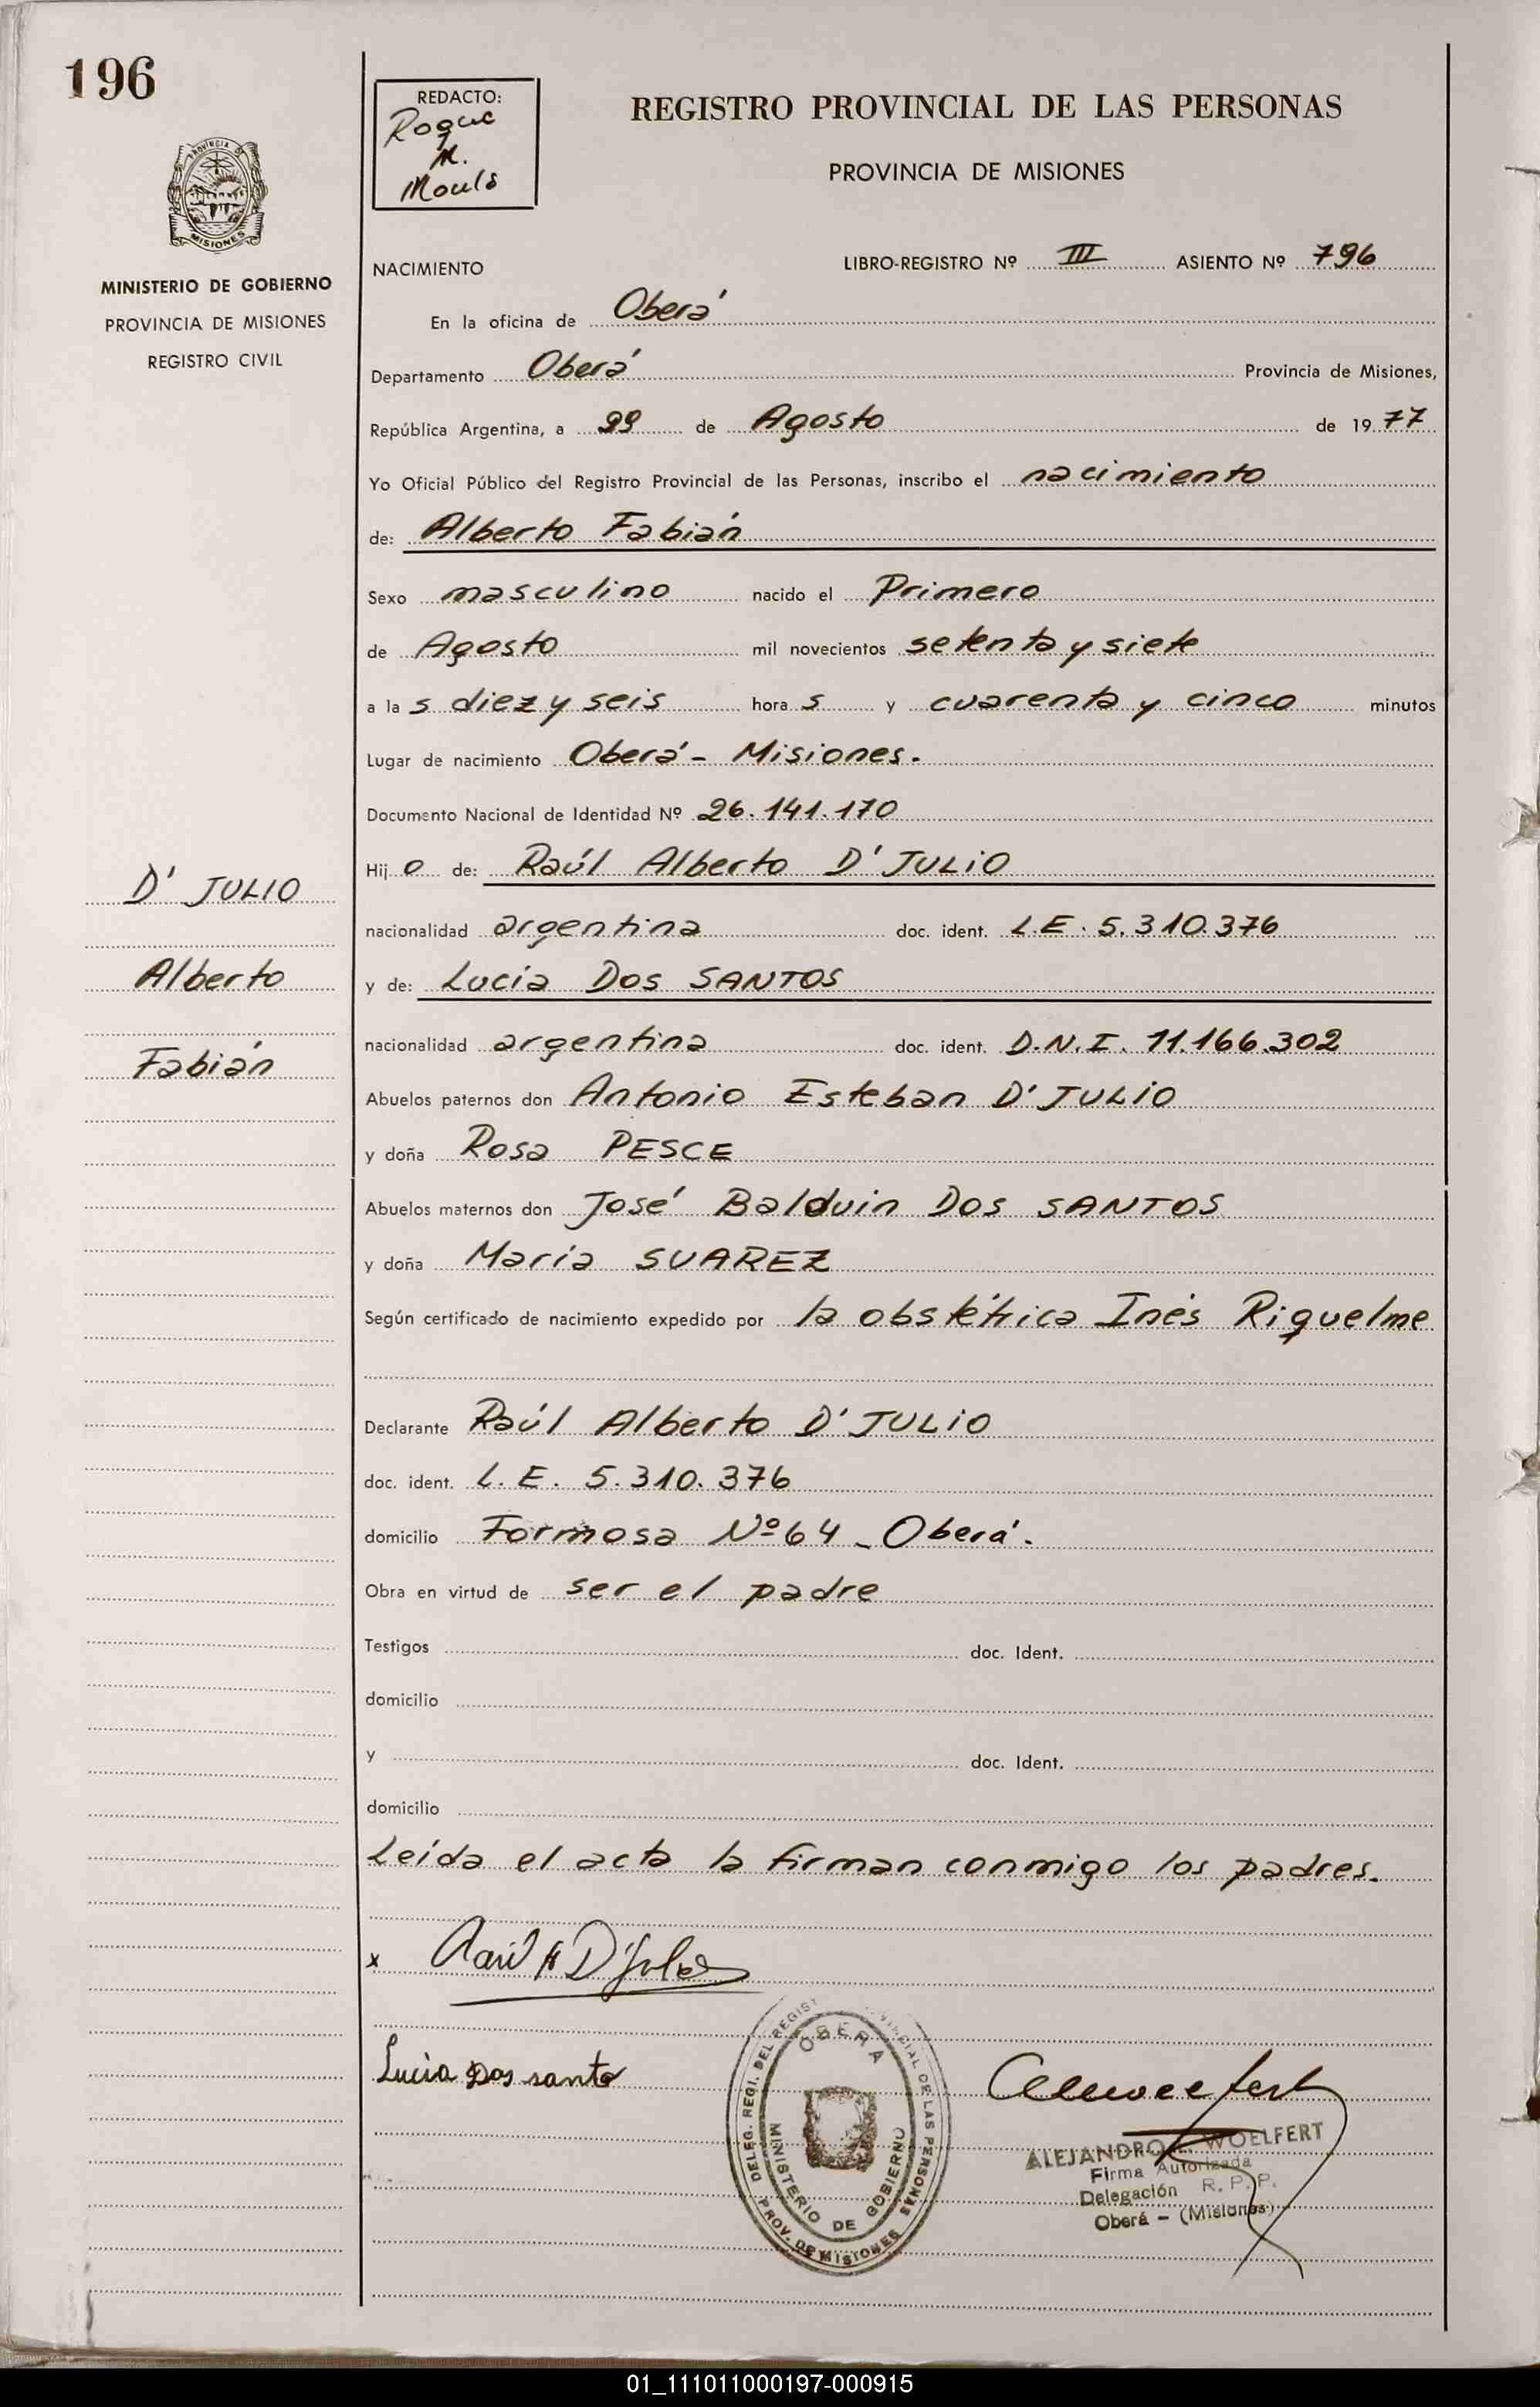 196
REDACTO:
Roque
M.
REGISTRO PROVINCIAL DE LAS PERSONAS
PROVINCIA DE MISIONES
PROVINCIA DE
MISIONES
MINISTERIO DE GOBIERNO
PROVINCIA DE MISIONES
REGISTRO CIVIL
NACIMIENTO
LIBRO-REGISTRO Nº III ASIENTO Nº 796
En la oficina de Oberá
Departamento Oberá Provincia de Misiones,
República Argentina, a de Agosto de 1977
Yo Oficial Público del Registro Provincial de las Personas, inscribo el nacimiento
de: Alberto Fabián
Sexo masculino nacido el Primero
de Agosto mil novecientos setenta y siete
a las diez y seis horas y cuarenta y cinco minutos
Lugar de nacimiento Oberá - Misiones.
Documento Nacional de Identidad Nº 26.141.170
Hijo de: Raúl Alberto D' JULiO
D' JULIO
nacionalidad argentina doc. ident. L.E. 5.310.376
Alberto
y de: Lucía Dos SANTOS
Fabián
nacionalidad argentina doc. ident. D.N.I. 11.166.302
Abuelos paternos don Antonio Esteban D' JULiO
y doña Rosa PESCE
Abuelos maternos don José Balduin Dos SANTOS
y doña María SUAREZ
Según certificado de nacimiento expedido por la obstétrica Inés Riquelme
Declarante Raúl Alberto D' JULiO
doc. ident. L.E. 5.310.376
domicilio Formosa Nº 64 - Oberá.
Obra en virtud de ser el padre
Testigos doc. Ident.
domicilio
y doc. Ident.
domicilio
Leída el acta la firman conmigo los padres.
x Raúl A D'Julio
Lucia Dos santo
OBERA
MINISTERIO DE GOBIERNO
DELEG. REGI. DEL REGIST NCIAL DE LAS PERSONAS
PROV. DE MISIONES
ALEJANDRO WOELFERT
Firma Autorizada
Delegación R. P. P.
Oberá - (Misiones)
01_111011000197-000915